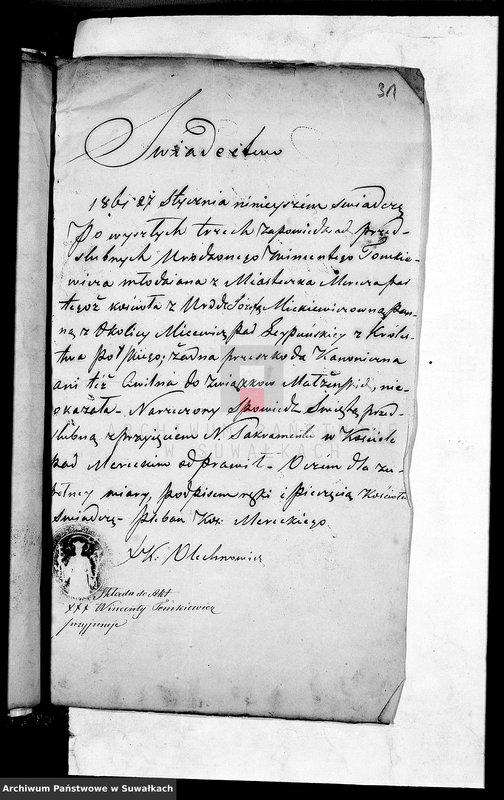 31
Świadectwo
1861 27 Stycznia ninieyszem świadczę
Po wyszłych trzech zapowiedziach przed-
slubnych Urodzonego Wincentego Tomkie-
wicza młodziana z Miasteczka Merecza par
tegoż kościoła z Urod: Józefą Mickiewiczowną Pan-
ną z Okolicy Micewicz par Leypuńskiey z Króles-
twa Polskiego; żadna przeszkoda Kanoniczna
ani też Cwilna do związkow Małżeńskich, nie-
okazała - Narzeczony Spowiedź Świętą przed-
ślubną z przyjęciem N. Sakramentu w Kościele
par Mereckim odprawił - O czem dla zu-
pełney wiary, podpisem ręki i pieczęcią Kościoła
świadczę - Pleban Koś: Mereckiego
X K. Olechnowicz
Składa do Akt
XXX Wincenty Tomkiewicz
przyjmuje
ARCHIWUM PAŃSTWOWE
W SUWAŁKACH
Archiwum Państwowe w Suwałkach